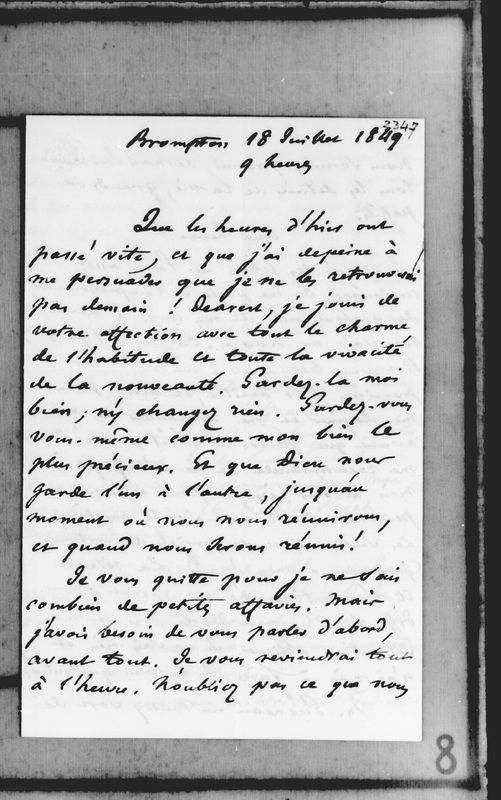 2347
Brompton 18 Juillet 1849
9 heures
Que les heures d'hier ont
passé vite, et que j'ai de peine à
me persuader que je ne les retrouverai
pas demain ! Dearest, je jouis de
votre affection avec tout le charme
de l'habitude et toute la vivacité
de la nouveauté. Gardez-la moi
bien ; n'y changez rien. Gardez-vous
vous-même comme mon bien le
plus précieux. Et que Dieu nous
garde l'un à l'autre, jusqu'au
moment où nous nous réunirons,
et quand nous serons réunis !
Je vous quitte pour je ne sais
combien de petites affaires. Mais
j'avais besoin de vous parler d'abord,
avant tout. Je vous reviendrai tout
à l'heure. N'oubliez pas ce que nous
8